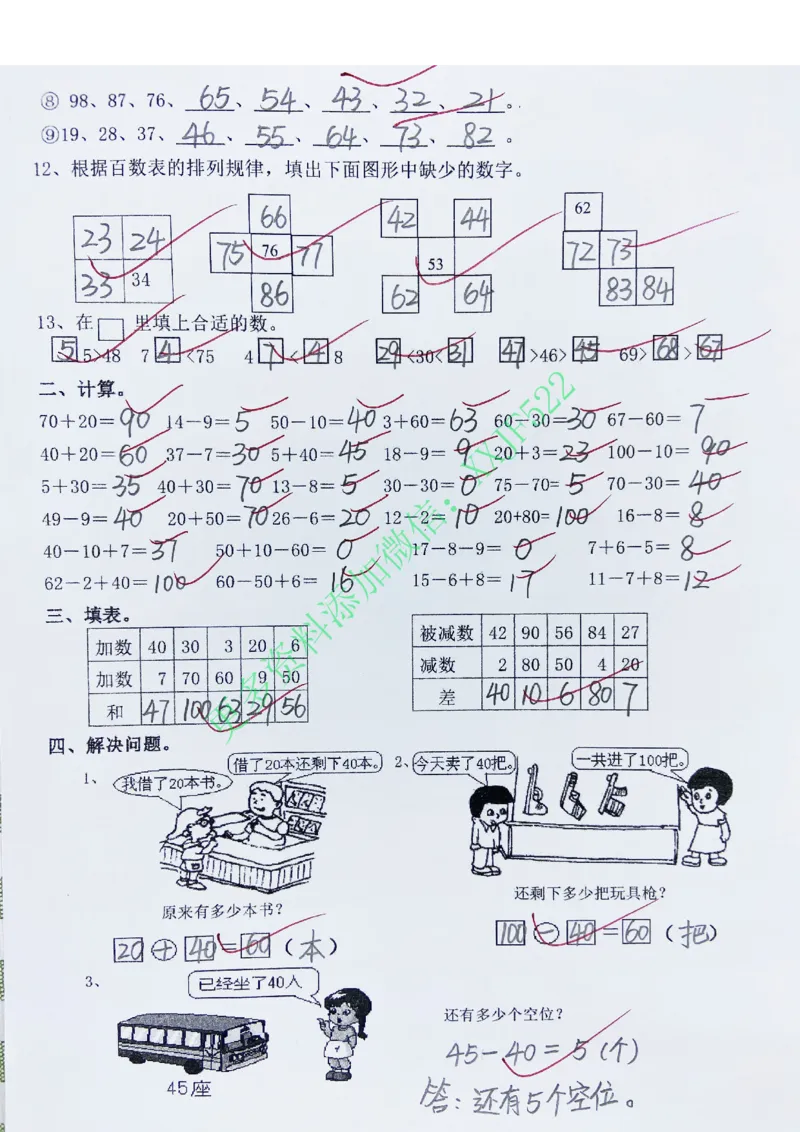 ⑧ 98、87、76、65、54、43、32、21。
⑨19、28、37、46、55、64、73、82。
12、根据百数表的排列规律，填出下面图形中缺少的数字。
23 24 33 34
66 75 76 77 86
42 44 53 62 64
62 72 73 83 84
13、在□里填上合适的数。
5 5>48 7 4<75 4 7<4 8 29<30<31 47>46>45 69>68>67
二、计算。
70+20=90 14-9=5 50-10=40 3+60=63 60-30=30 67-60=7
40+20=60 37-7=30 5+40=45 18-9=9 20+3=23 100-10=90
5+30=35 40+30=70 13-8=5 30-30=0 75-70=5 70-30=40
49-9=40 20+50=70 26-6=20 12-2=10 20+80=100 16-8=8
40-10+7=37 50+10-60=0 17-8-9=0 7+6-5=8
62-2+40=100 60-50+6=16 15-6+8=17 11-7+8=12
三、填表。
加数 40 30 3 20 6
加数 7 70 60 9 50
和 47 100 63 29 56
被减数 42 90 56 84 27
减数 2 80 50 4 20
差 40 10 6 80 7
四、解决问题。
1、
我借了20本书。
借了20本还剩下40本。
原来有多少本书？
20+40=60（本）
2、
今天卖了40把。
一共进了100把。
还剩下多少把玩具枪？
100-40=60（把）
3、
已经坐了40人
45座
还有多少个空位？
45-40=5(个)
答：还有5个空位。
更多资料添加微信：XXJF522